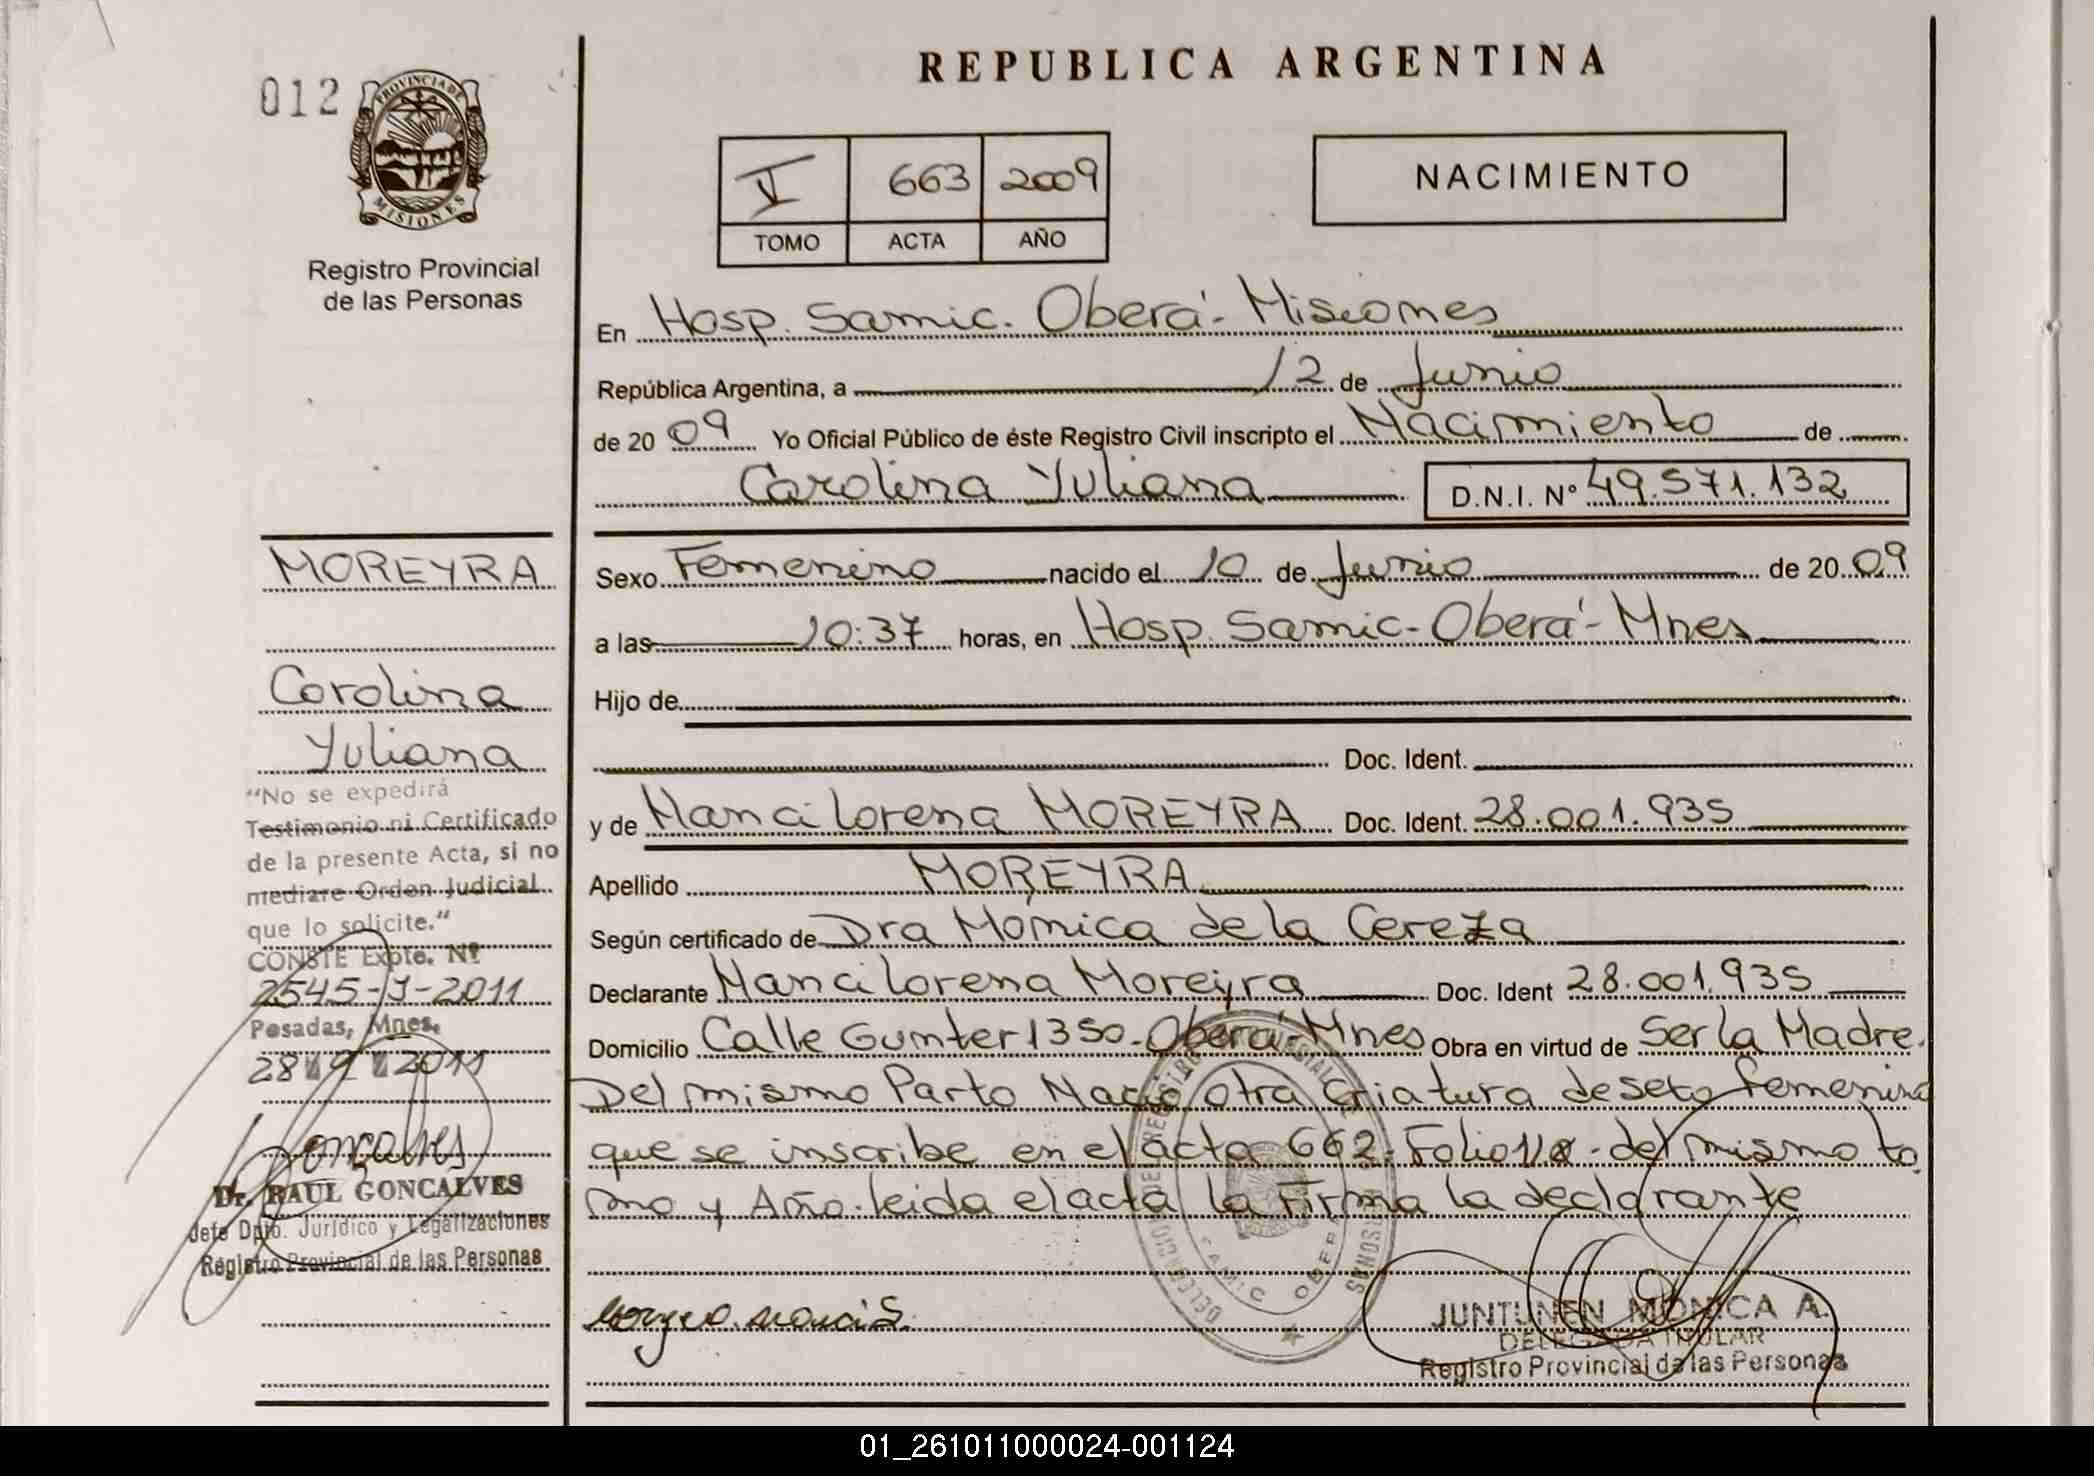 REPUBLICA ARGENTINA
012
PROVINCIA DE
MISIONES
Registro Provincial
de las Personas
V 663 2009
TOMO ACTA AÑO
NACIMIENTO
En Hosp. Samic. Oberá - Misiones
República Argentina, a 12 de Junio
de 2009 Yo Oficial Público de éste Registro Civil inscripto el Nacimiento de
Carolina Yuliana D.N.I. Nº 49.571.132
Sexo Femenino nacido el 10 de Junio de 2009
a las 10:37 horas, en Hosp. Samic - Oberá - Mnes
Hijo de
Doc. Ident.
y de Nanci Lorena MOREYRA Doc. Ident. 28.001.935
Apellido MOREYRA
Según certificado de Dra Mónica de la Cereza
Declarante Nanci Lorena Moreyra Doc. Ident 28.001.935
Domicilio Calle Gunter 1350 - Oberá - Mnes Obra en virtud de Ser la Madre.
Del mismo Parto Nació otra Criatura de sexo femenina
que se inscribe en el acta 662. Folio - del mismo to
mo y Año. leida el acta la Firma la declarante
MOREYRA
Carolina
Yuliana
“No se expedirá
Testimonio ni Certificado
de la presente Acta, si no
mediare Orden Judicial
que lo solicite.”
CONSTE Expte. Nº
2545-J-2011
Posadas, Mnes.
28 9 2011
Goncalves
Dr. RAUL GONCALVES
Jefe Dpto. Jurídico y Legalizaciones
Registro Provincial de las Personas
SAMIC OBERA
JUNTUNEN MONICA A.
DELEGADA TITULAR
Registro Provincial de las Personas
01_261011000024-001124